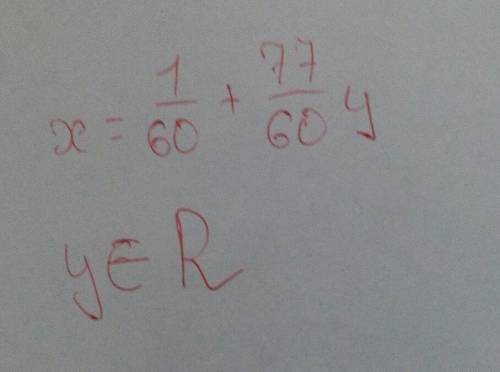 x = 1/60 + 77/60 y
y ∈ R